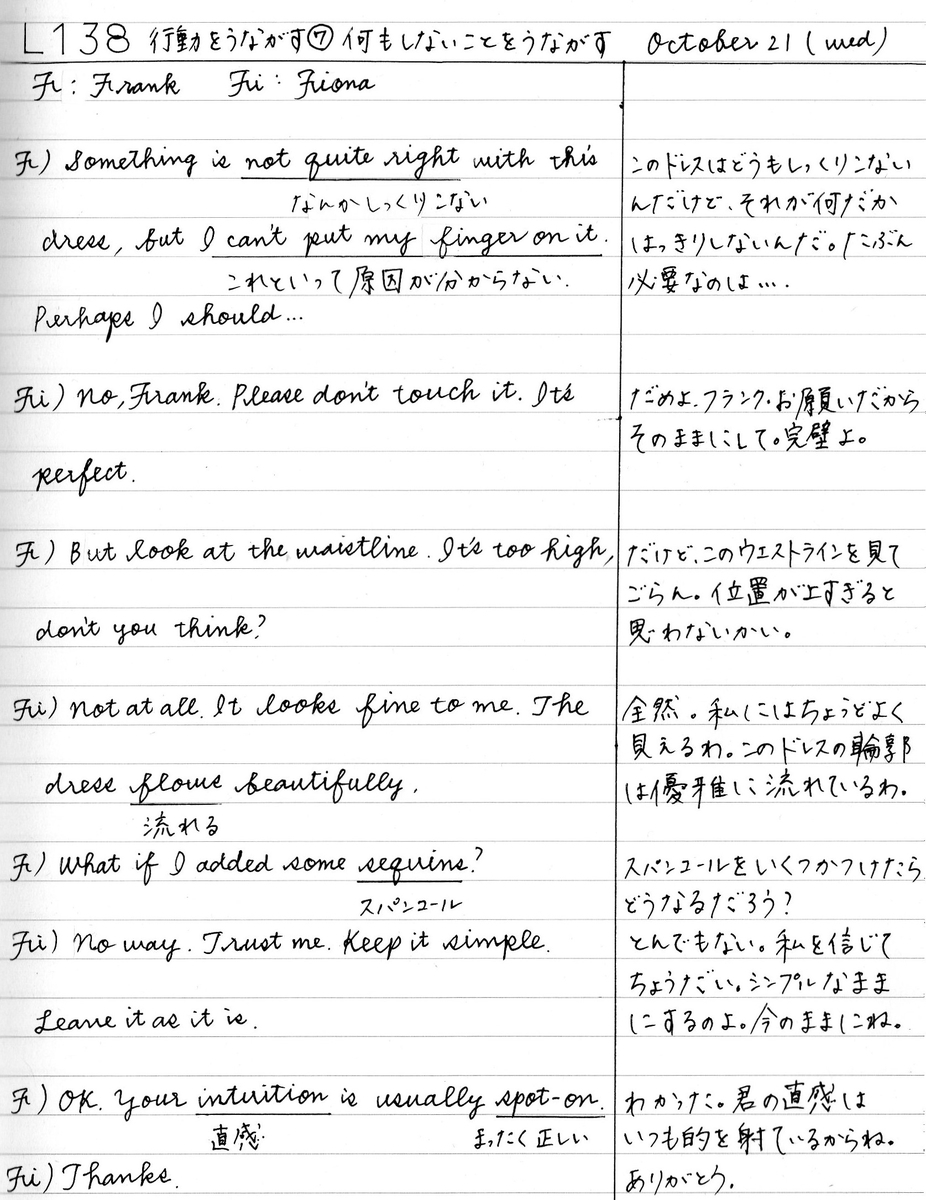 L138 行動をうながす⑦ 何もしないことをうながす October 21 (wed)
Fr : Frank Fi : Fiona
Fr) Something is not quite right with this
なんかしっくりこない
dress, but I can't put my finger on it.
これといって原因が分からない.
Perhaps I should...
このドレスはどうもしっくりこない
んだけど、それが何だか
はっきりしないんだ。たぶん
必要なのは….
Fi) No, Frank. Please don't touch it. It's
perfect.
だめよ、フランク。お願いだから
そのままにして。完璧よ。
Fr) But look at the waistline. It's too high,
don't you think?
だけど、このウエストラインを見て
ごらん。位置が上すぎると
思わないかい。
Fi) Not at all. It looks fine to me. The
dress flows beautifully.
流れる
全然。私にはちょうどよく
見えるわ。このドレスの輪郭
は優雅に流れているわ。
Fr) What if I added some sequins?
スパンコール
スパンコールをいくつかつけたら
どうなるだろう?
Fi) No way. Trust me. Keep it simple.
Leave it as it is.
とんでもない。私を信じて
ちょうだい。シンプルなまま
にするのよ。今のままにね。
Fr) OK. Your intuition is usually spot-on.
直感 まったく正しい
わかった。君の直感は
いつも的を射ているからね。
Fi) Thanks.
ありがとう.